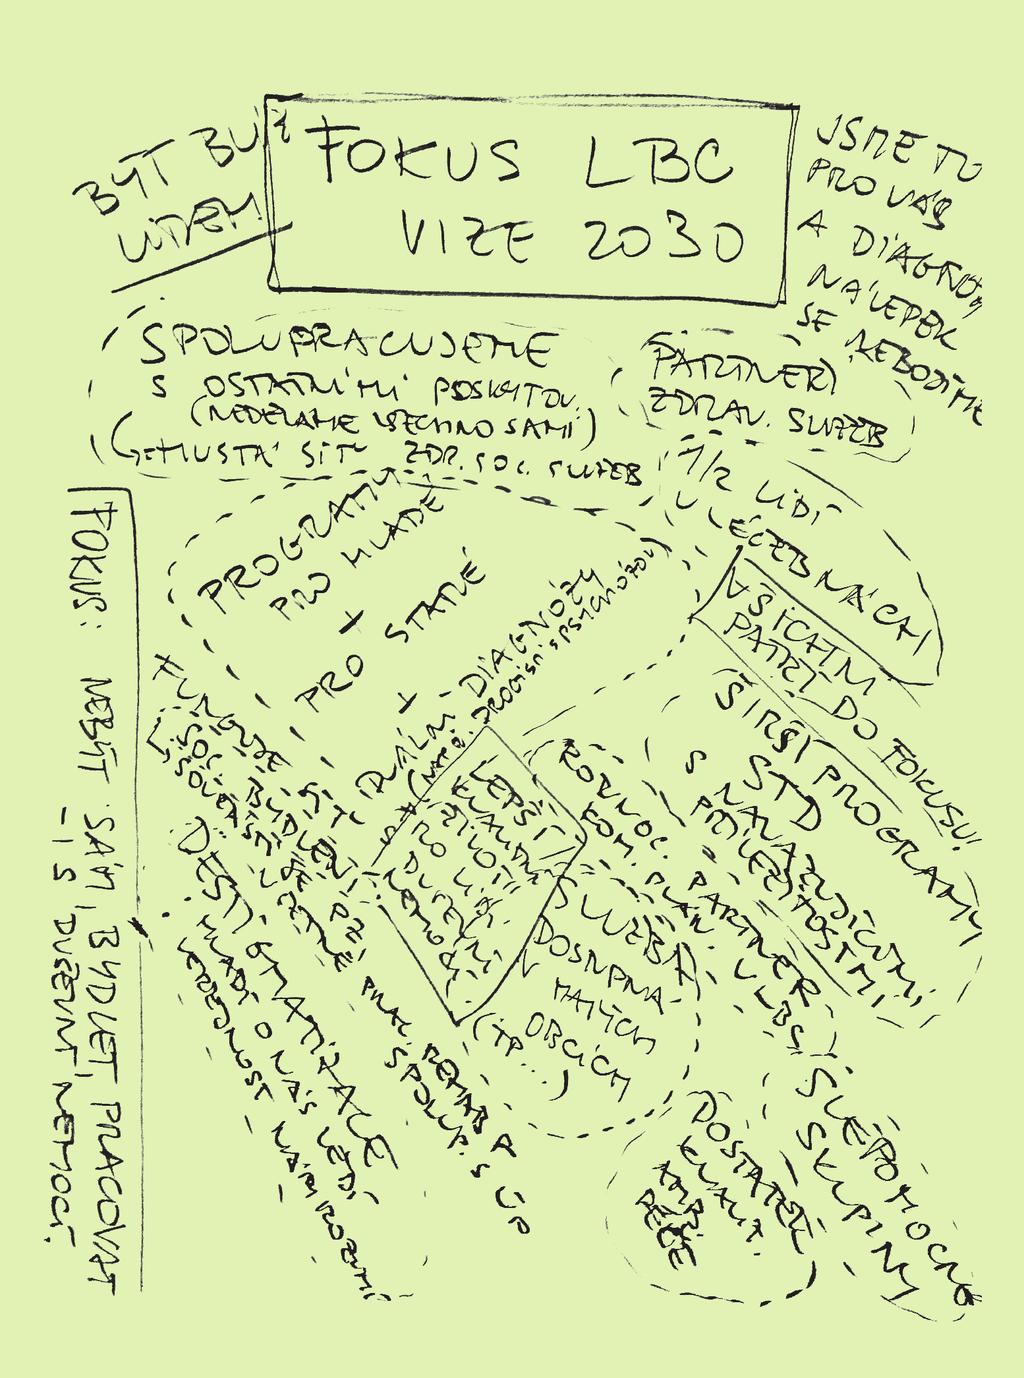 FOKUS LBC
VIZE 2030
BÝT BLÍŽ
LIDEM
JSME TU
PRO VÁS
A DIAGNO
NÁLEPEK
SE NEBOJÍME
SPOLUPRACUJEME
S OSTATNÍMI POSKYTOV.
(NEDĚLÁME VŠECHNO SAMI)
HUSTÁ SÍŤ ZDR. SOC. SLUŽEB
PARTNEŘI
ZDRAV. SLUŽEB
1/2 LIDÍ
V LÉČEBNÁCH
VŠICHNI
PATŘÍ DO FOKUSU!
PROGRAMY
PRO MLADÉ
+
PRO STARÉ
+
DALŠÍ DIAGNÓZY
ŠIRŠÍ PROGRAMY
STD
S NAVAZUJÍCÍMI
PŘÍLEŽITOSTMI
ROVNOC. PARTNER
KOM. PLÁN. V LBC
LEPŠÍ
KVALITA
ŽIVOTA
PRO LIDI
DUŠEVNÍ
NEMOCÍ.
SLUŽBA
DOSTUPNÁ
V MALÝCH
OBCÍCH
(TP...)
FUNGUJE SÍŤ
SOC. BYDLENÍ
DESTIGMATIZACE
MLADÍ O NÁS VĚDÍ
VEŘEJNOST NÁM ROZUMÍ
SPOLUP. S ÚP
SVÉPOMOCNÉ
SKUPINY
DOSTATEK
KVALIT.
AMB.
PÉČE
FOKUS: NEBÝT SÁM, BYDLET, PRACOVAT
- I S DUŠEVNÍ NEMOCÍ.